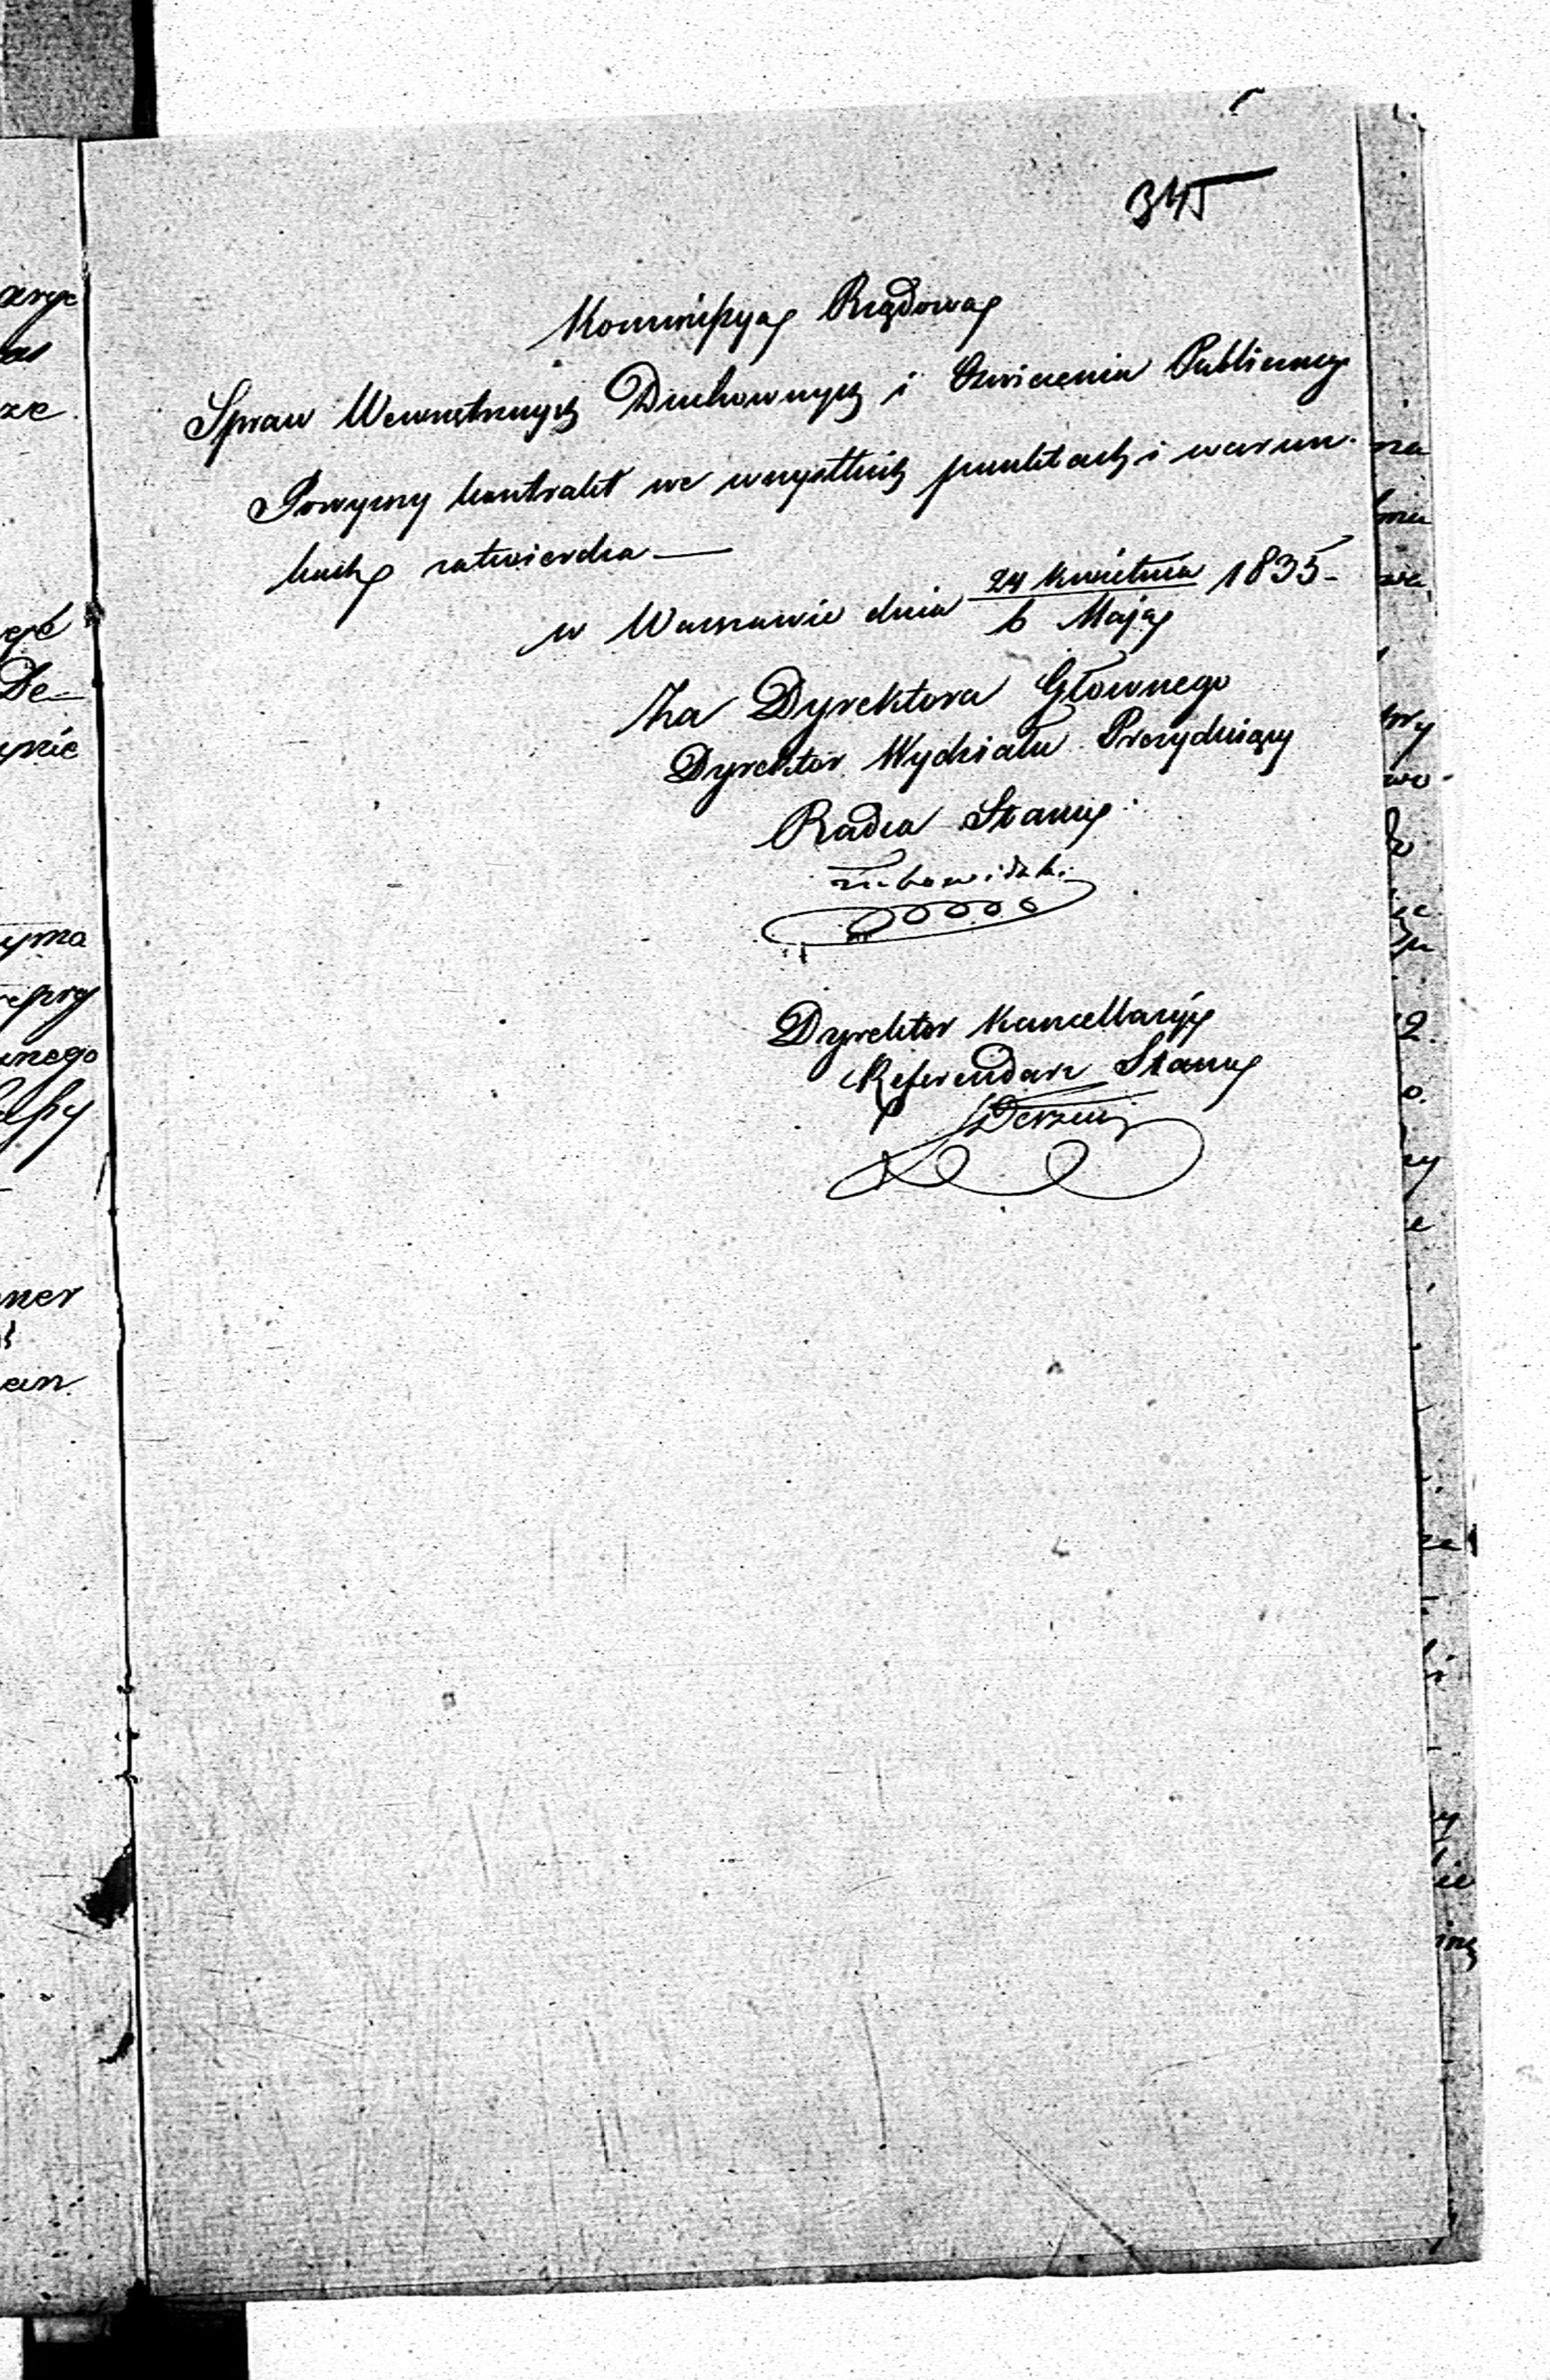 345
Kommissya Rządowa
Spraw Wewnętrznych Duchownych i Oświecenia Publicznego
Powyższy kontrakt we wszystkich punktach i warun-
kach zatwierdza —
w Warszawie dnia 24 Kwietnia / 6 Maja 1835 -
Za Dyrektora Głównego
Dyrektor Wydziału Prezydujący
Radca Stanu
Dyrektor Kancellaryi
Referendarz Stanu